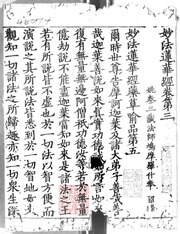 妙法蓮華經卷第三
姚秦三藏法師鳩摩羅什奉 詔譯
妙法蓮華經藥草喻品第五
爾時世尊告摩訶迦葉及諸大弟子善哉善
哉迦葉善說如來真實功德誠如所言如來
復有無量無邊阿僧祇功德汝等若於無量
億劫說不能盡迦葉當知如來是諸法之王
若有所說皆不虛也於一切法以智方便而
演說之其所說法皆悉到於一切智地如來
觀知一切諸法之所歸趣亦知一切眾生深